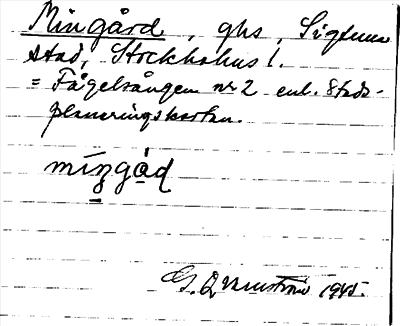 Mingård, ghs, Sigtuna
stad, Stockholms l.
= Fågelsången nr 2 enl. Stads-
planeringskartan.
mìŋgå̀d
G. 1945.